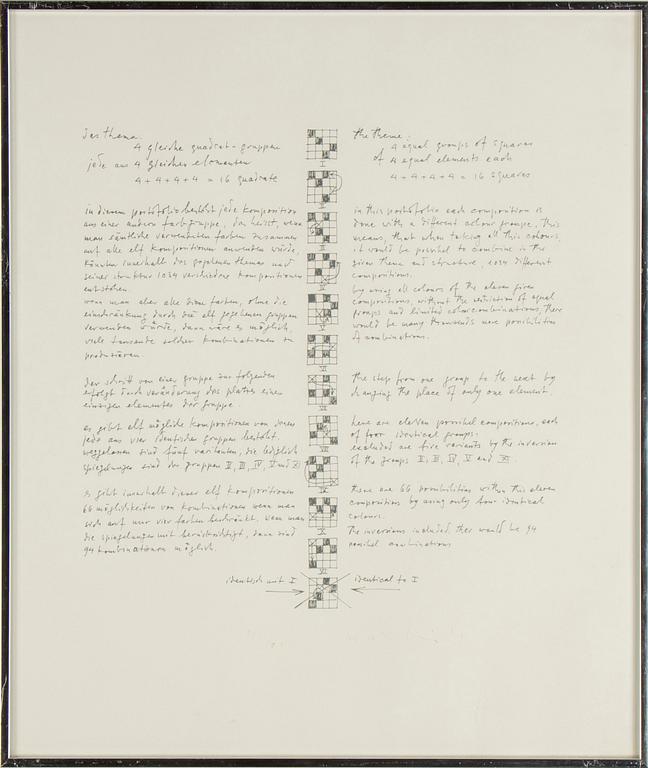 das thema:
4 gleiche quadrat-gruppen
jede aus 4 gleichen elementen
4+4+4+4 = 16 quadrate
in diesem portofolio besteht jede komposition
aus einer andern farbgruppe, das heisst, wenn
man sämtliche verwendeten farben zusammen
auf alle elf kompositionen anwenden würde,
könnten innerhalb des gegebenen themas und
seiner struktur 1034 verschiedene kompositionen
entstehen.
wenn man aber alle diese farben, ohne die
einschränkung durch die elf gegebenen gruppen
verwenden würde, dann wäre es möglich,
viele tausende solcher kombinationen zu
produzieren.
der schritt von einer gruppe zur folgenden
erfolgt durch veränderung des platzes eines
einzigen elementes der gruppe.
es gibt elf mögliche kompositionen von denen
jede aus vier identischen gruppen besteht.
weggelassen sind fünf varianten, die lediglich
spiegelungen sind der gruppen II, III, IV, V und XI
es gibt innerhalb dieser elf kompositionen
66 möglichkeiten von kombinationen wenn man
sich auf nur vier farben beschränkt. wenn man
die spiegelungen mit berücksichtigt, dann sind
94 kombinationen möglich.
identisch mit I
I
II
III
IV
V
VI
VII
VIII
IX
X
XI
the theme:
4 equal groups of squares
of 4 equal elements each
4+4+4+4 = 16 squares
in this portofolio each composition is
done with a different colour groupe, this
means, that when taking all this colours
it would be possibel to combine in the
given theme and structure, 1034 different
compositions.
by using all colours of the eleven given
compositions, without the restriction of equal
groups and limited colourcombinations, there
would be many thousends more possibilities
of combinations.
the step from one group to the next by
changing the place of only one element.
here are eleven possibel compositions, each
of four identical groups:
excluded are five variants by the inversion
of the groups II, III, IV, V and XI.
there are 66 possibilities within this eleven
compositions by using only four identical
colours.
the inversions included, ther would be 94
possibel combinations
identical to I